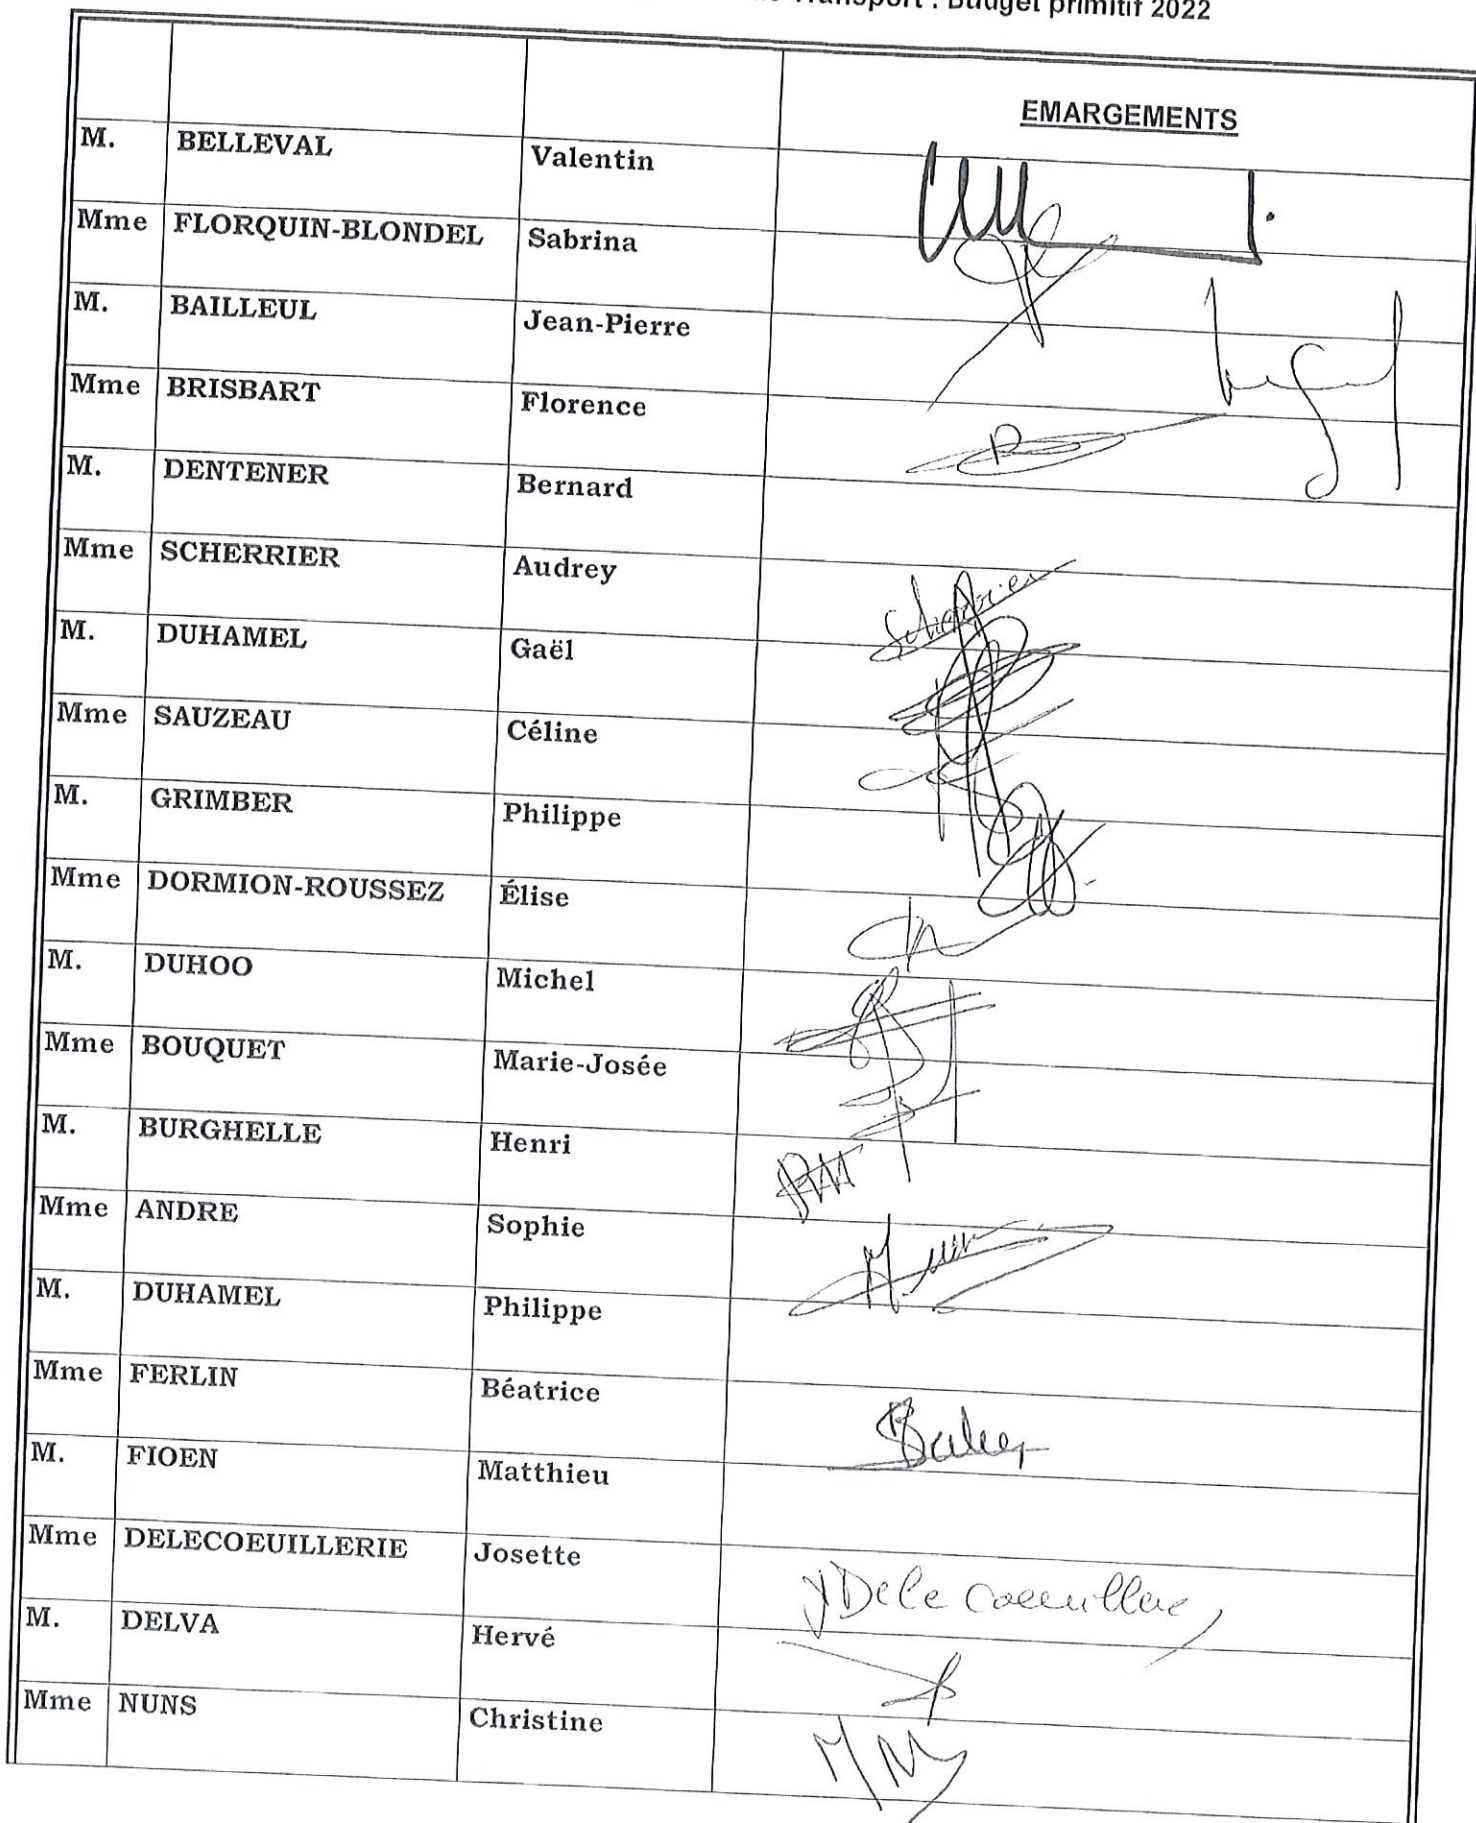 Transport : Budget primitif 2022
EMARGEMENTS
M. BELLEVAL Valentin
Mme FLORQUIN-BLONDEL Sabrina
M. BAILLEUL Jean-Pierre
Mme BRISBART Florence
M. DENTENER Bernard
Mme SCHERRIER Audrey
M. DUHAMEL Gaël
Mme SAUZEAU Céline
M. GRIMBER Philippe
Mme DORMION-ROUSSEZ Élise
M. DUHOO Michel
Mme BOUQUET Marie-Josée
M. BURGHELLE Henri
Mme ANDRE Sophie
M. DUHAMEL Philippe
Mme FERLIN Béatrice
M. FIOEN Matthieu
Mme DELECOEUILLERIE Josette
M. DELVA Hervé
Mme NUNS Christine